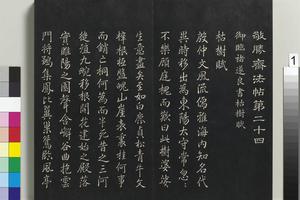 敬勝齋法帖第二十四
御臨褚遂良書枯樹賦
枯樹賦
殷仲文風流儒雅海內知名代
異時移出為東陽太守常忽〻
不樂顧庭槐而歎曰此樹婆娑
生意盡矣至如白鹿貞松青牛文
梓根柢盤魄山崖表裏桂何事
而銷亡桐何為而半死昔之三河
徙植九畹移根開花建始之殿落
實睢陽之園聲含嶰谷曲抱雲
門將雛集鳳比翼巢鴛臨風亭
1